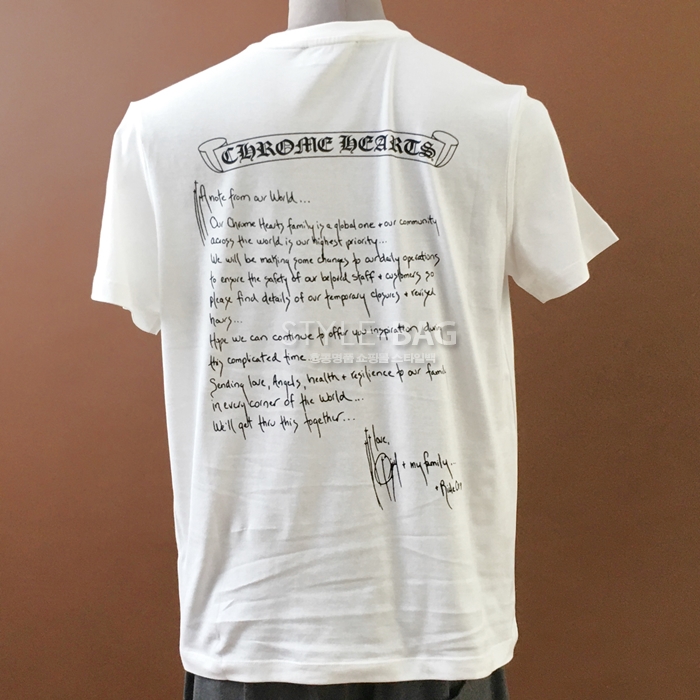 CHROME HEARTS
A note from our World...
Our Chrome Hearts family is a global one + our community
across the world is our highest priority...
We will be making some changes to our daily operations
to ensure the safety of our beloved staff + customers so
please find details of our temporary closures + revised
hours...
STYLE BAG
Hope we can continue to offer you inspiration during
홍콩명품 쇼핑몰 스타일백
this complicated time...
Sending love, Angels, health + resilience to our famil
in every corner of the World...
We'll get thru this together...
love,
+ my family...
+